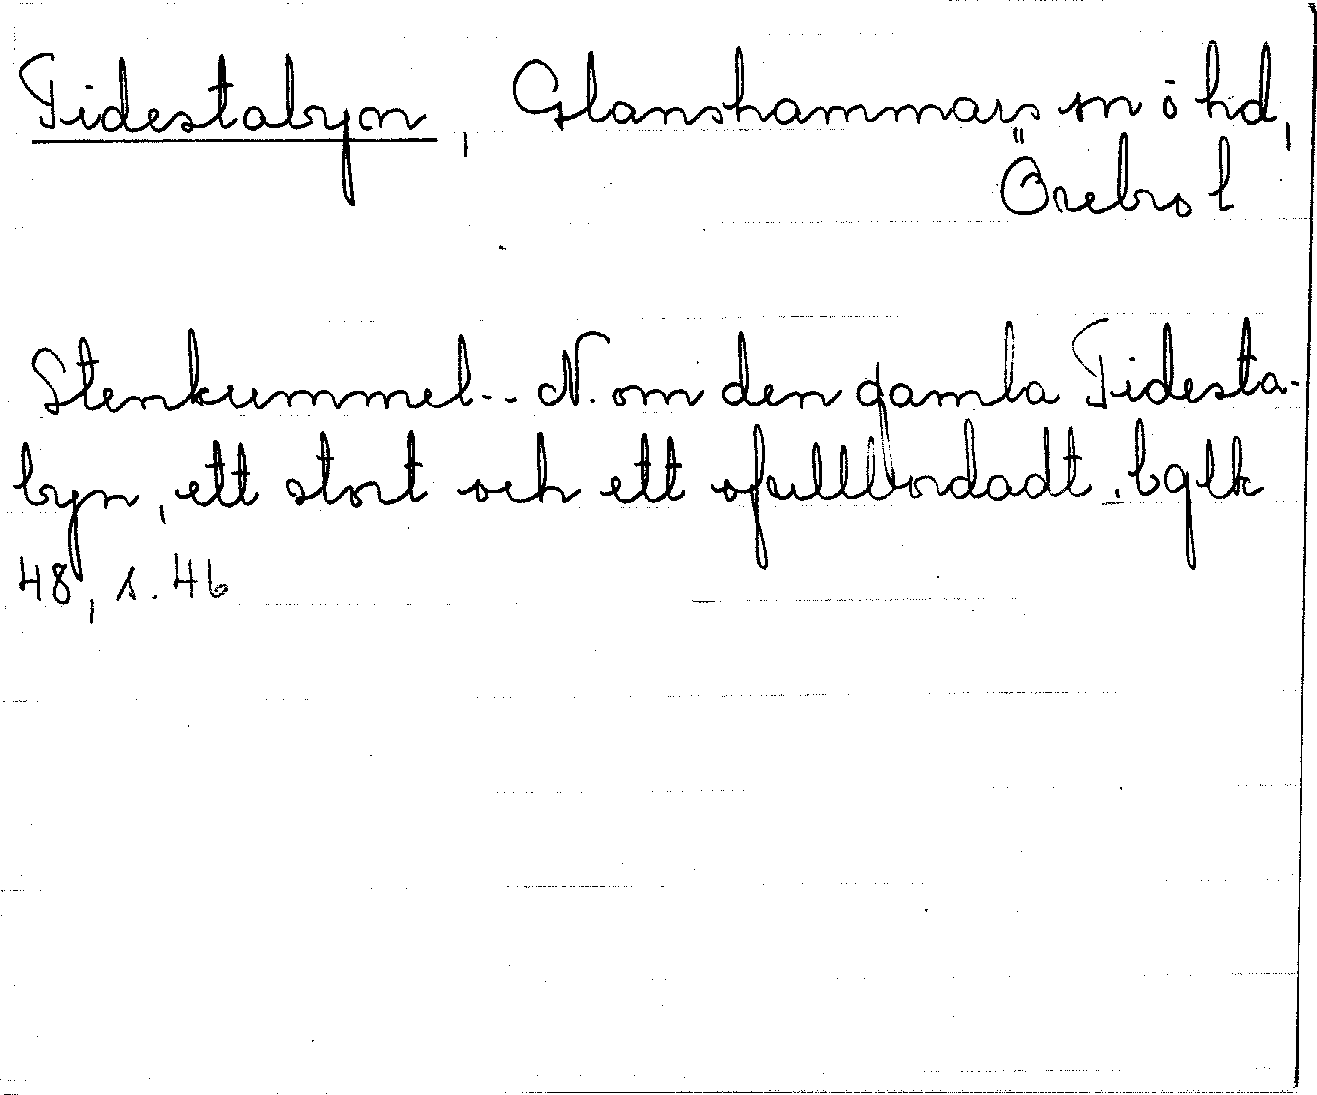 Tidestabyn, Glanshammars sn ö hd,
Örebro l
Stenkummel.. N. om den gamla Tidesta-
byn, ett stort och ett ofullbordadt. bglk
48, s. 46